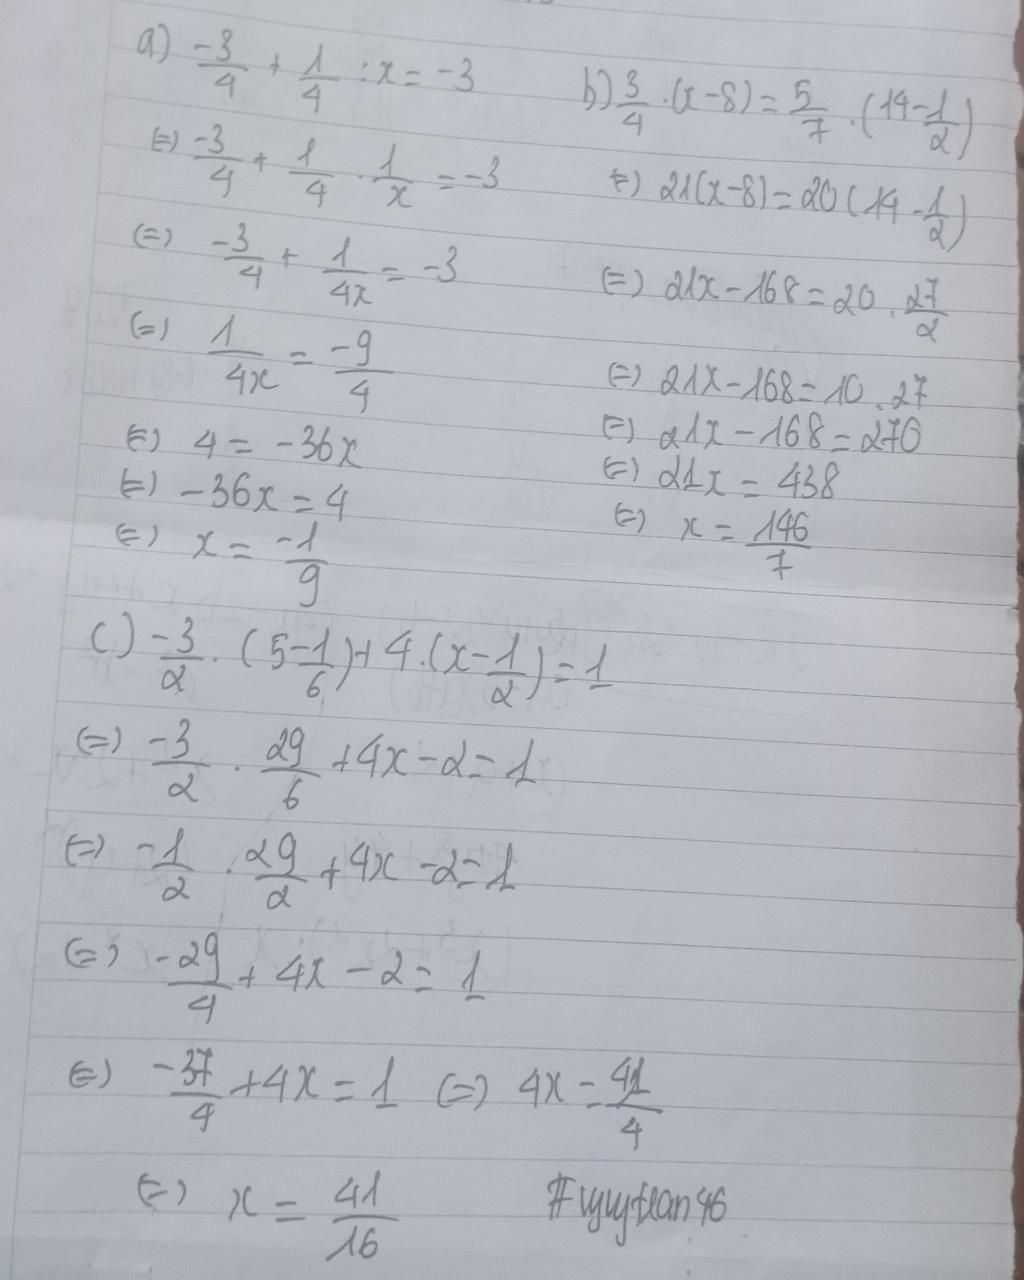 a) -3/4 + 1/4 : x = -3
(=) -3/4 + 1/4 . 1/x = -3
(=) -3/4 + 1/4x = -3
(=) 1/4x = -9/4
(=) 4 = -36x
(=) -36x = 4
(=) x = -1/9
b) 3/4 . (x-8) = 5/7 . (14 - 1/2)
(=) 21(x-8) = 20(14 - 1/2)
(=) 21x - 168 = 20 . 27/2
(=) 21x - 168 = 10 . 27
(=) 21x - 168 = 270
(=) 21x = 438
(=) x = 146/7
c) -3/2 . (5 - 1/6) + 4.(x - 1/2) = 1
(=) -3/2 . 29/6 + 4x - 2 = 1
(=) -1/2 . 29/2 + 4x - 2 = 1
(=) -29/4 + 4x - 2 = 1
(=) -37/4 + 4x = 1 (=) 4x = 41/4
(=) x = 41/16